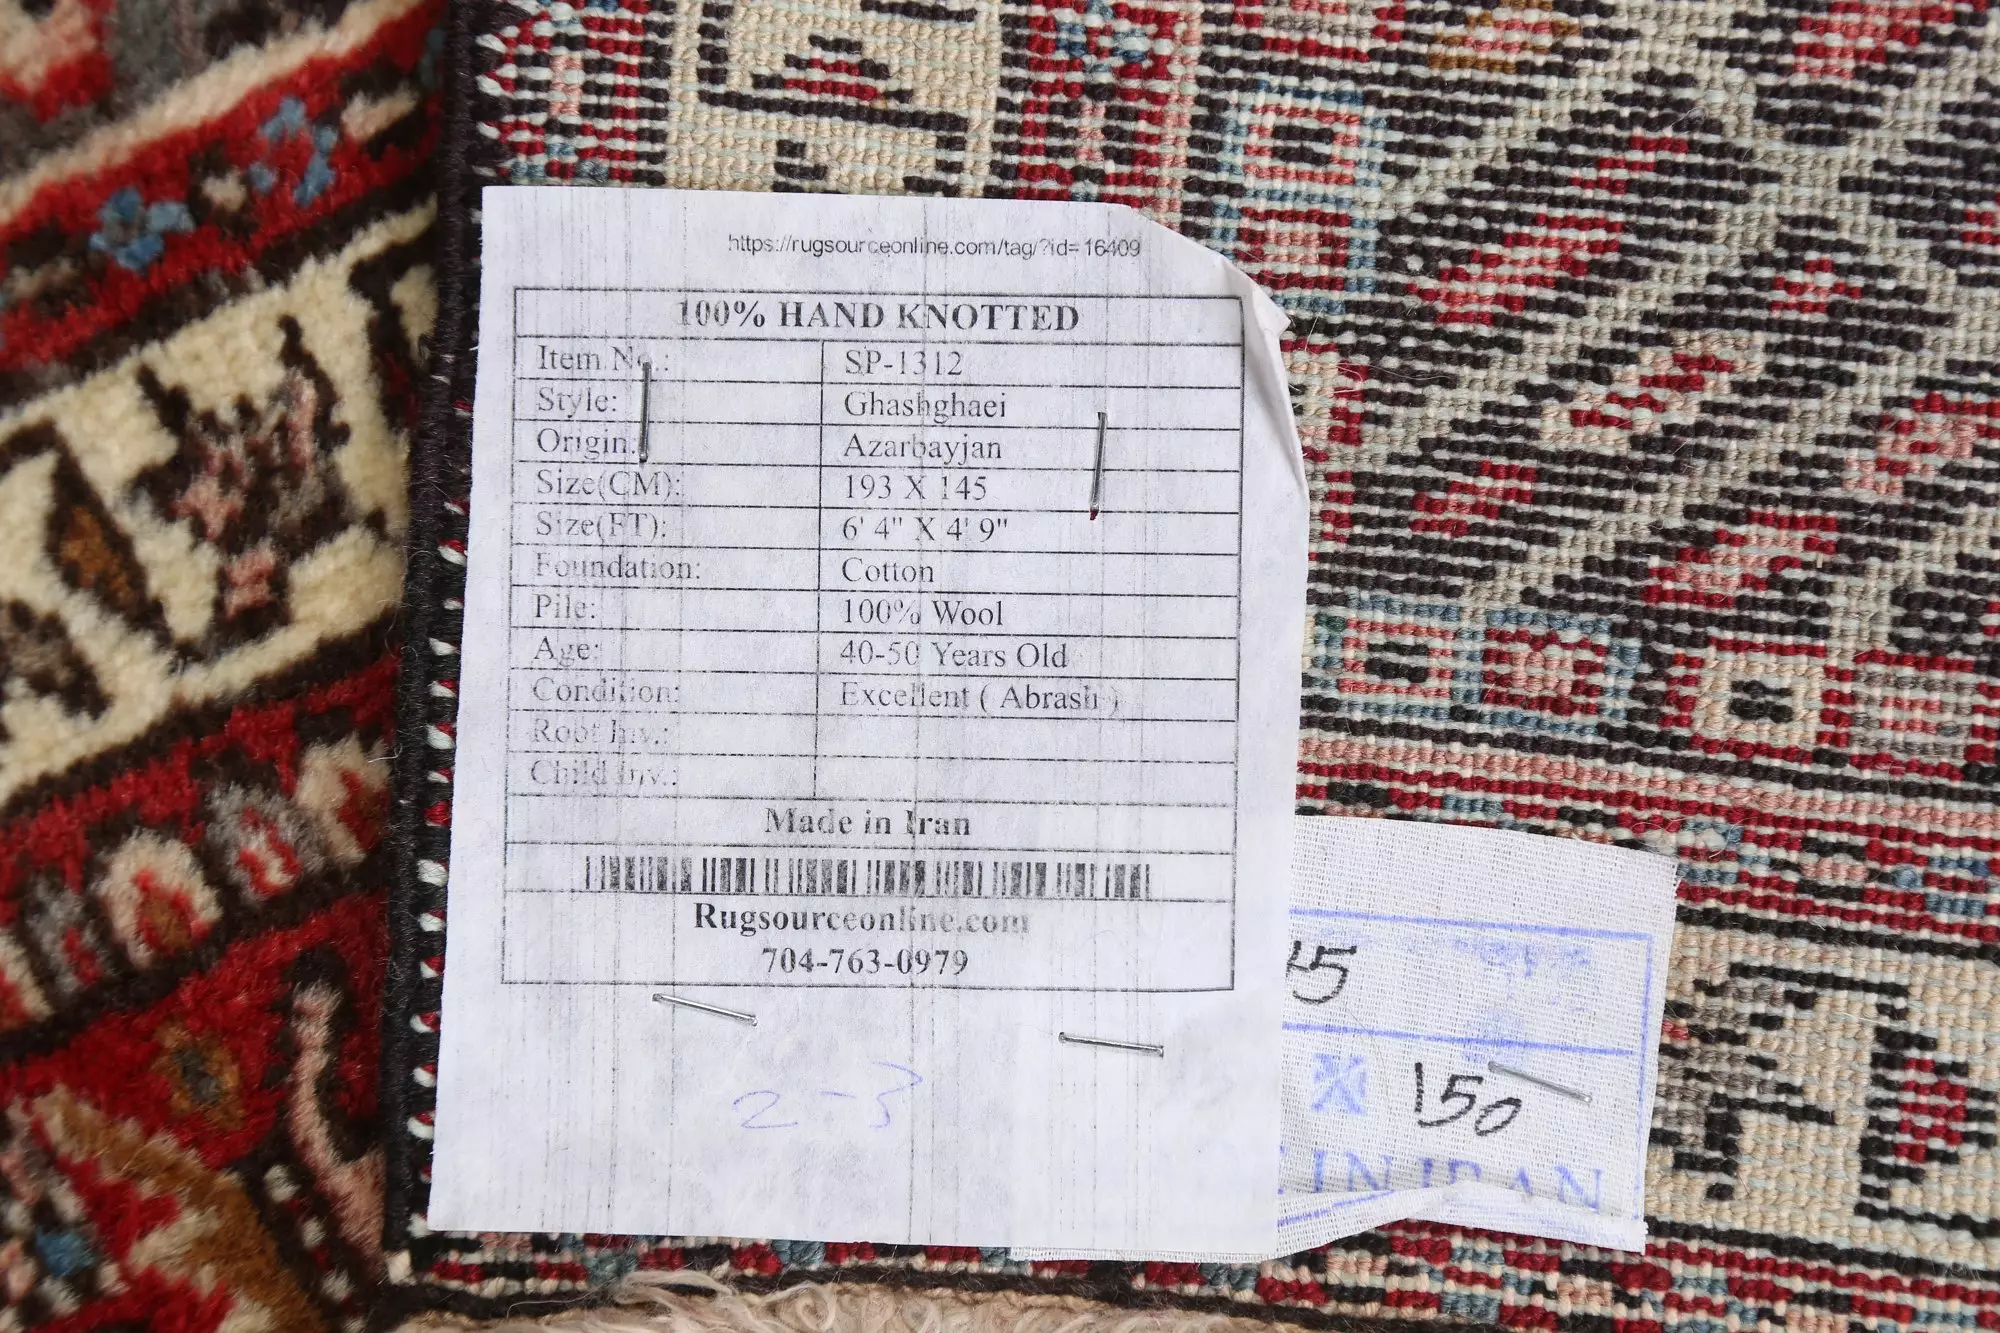 https://rugsourceonline.com/tag/?id=16409
100% HAND KNOTTED
Item No.: SP-1312
Style: Ghashghaei
Origin: Azarbayjan
Size(CM): 193 X 145
Size(FT): 6' 4" X 4' 9"
Foundation: Cotton
Pile: 100% Wool
Age: 40-50 Years Old
Condition: Excellent ( Abrash )
Root Inv.:
Child Inv.:
Made in Iran
Rugsourceonline.com
704-763-0979
2-3
45
150
IN IRAN